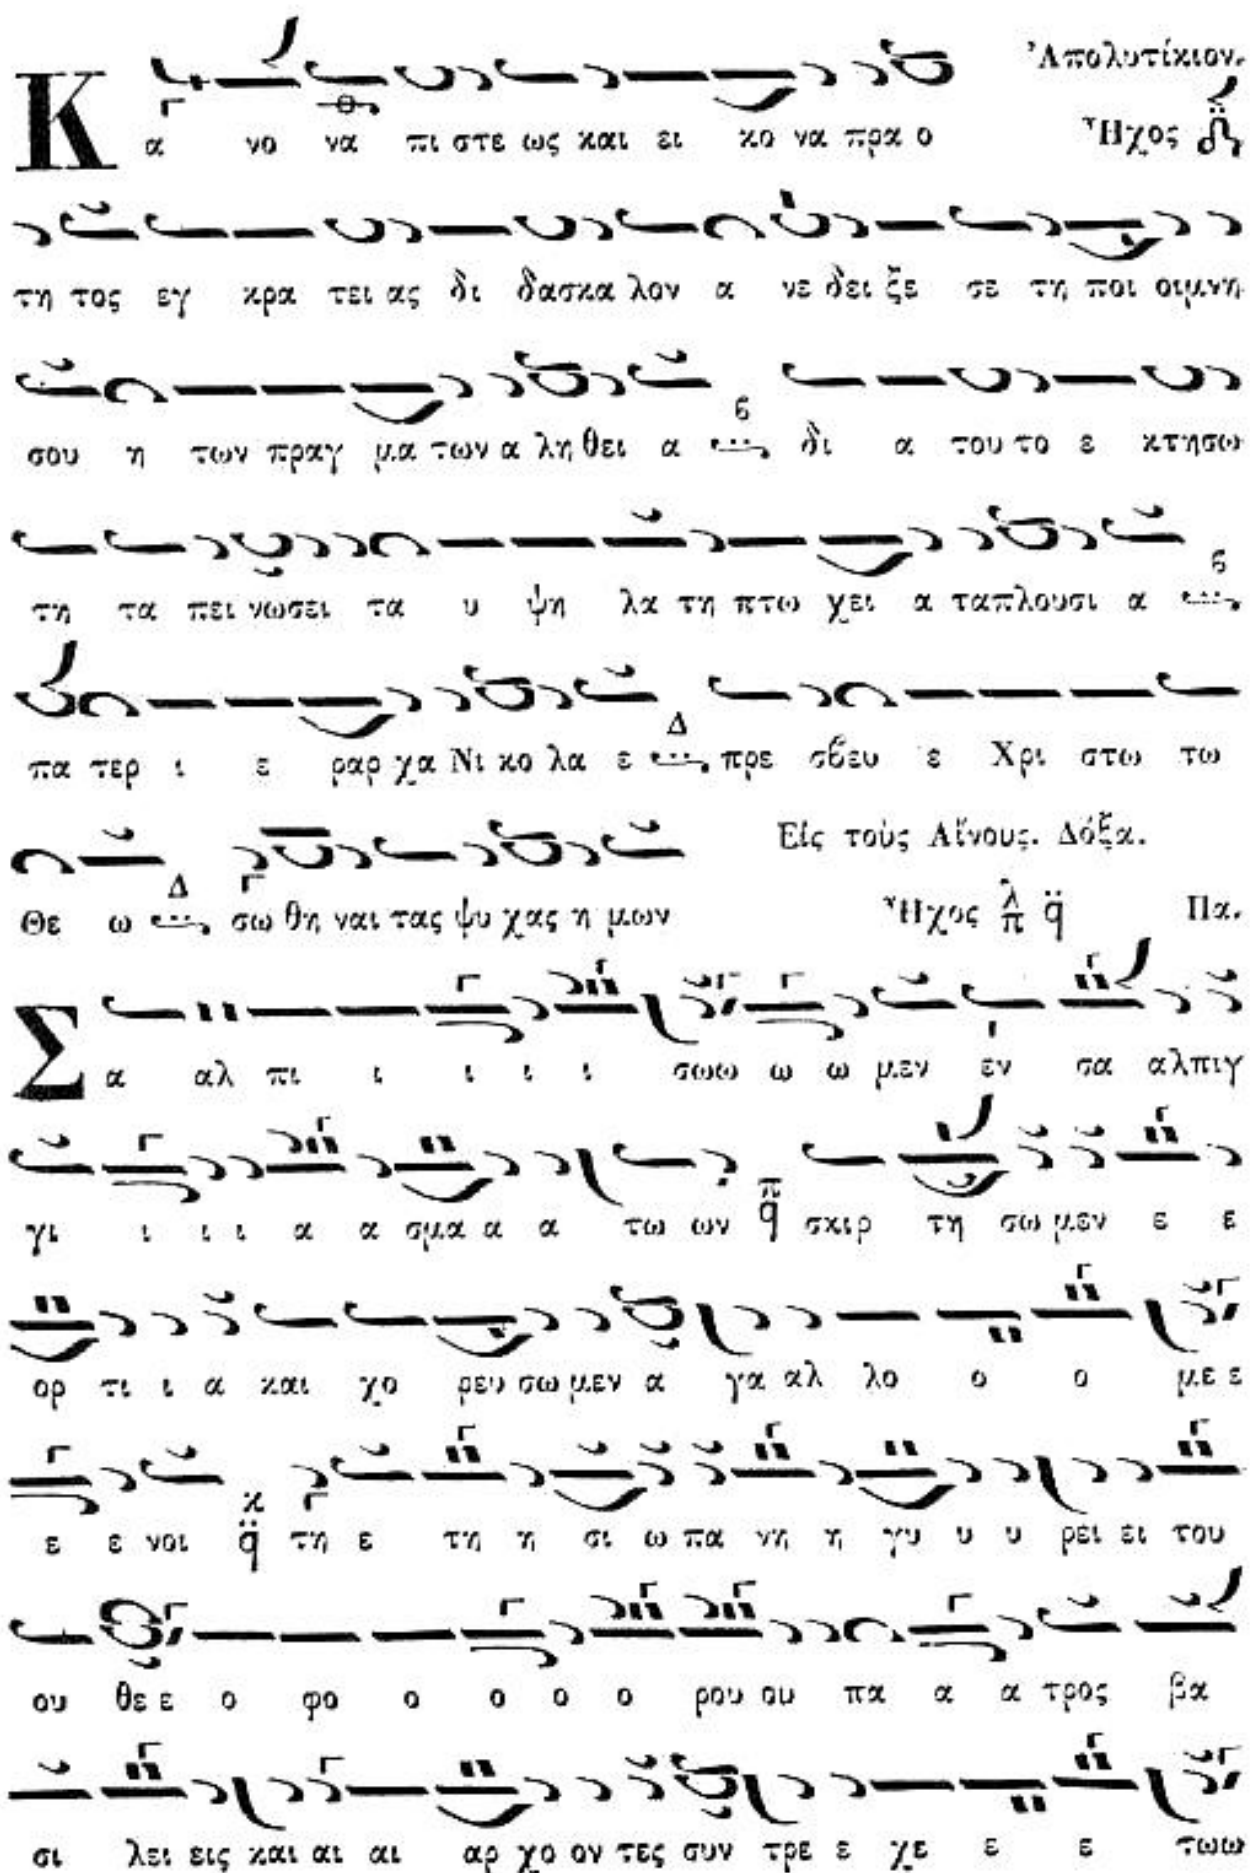 Ἀπολυτίκιον.
Κ α νο να πι στε ως και ει κο να πρα ο Ἦχος
τη τος εγ κρα τει ας δι δασκα λον α νε δει ξε σε τη ποι οιμνη
σου η των πραγ μα των α λη θει α ϐ δι α του το ε κτησω
τη τα πει νωσει τα υ ψη λα τη πτω χει α ταπλουσι α ϐ
πα τερ ι ε ραρ χα Νι κο λα ε Δ πρε σϐευ ε Χρι στω τω
Εἰς τοὺς Αἴνους. Δόξα.
Θε ω Δ σω θη ναι τας ψυ χας η μων Ἦχος λ π q̈ Πα.
Σ α αλ πι ι ι ι ι σωω ω ω μεν εν σα αλπιγ
γι ι ι ι α α σμα α α τω ων π q̈ σκιρ τη σω μεν ε ε
ορ τι ι α και χο ρευ σω μεν α γα αλ λο ο ο με ε
ε ε νοι κ q̈ τη ε τη η σι ω πα νη η γυ υ υ ρει ει του
ου θε ε ο φο ο ο ο ο ρου ου πα α α τρος βα
σι λει εις και αι αι αρ χο ον τες συν τρε ε χε ε ε τωω